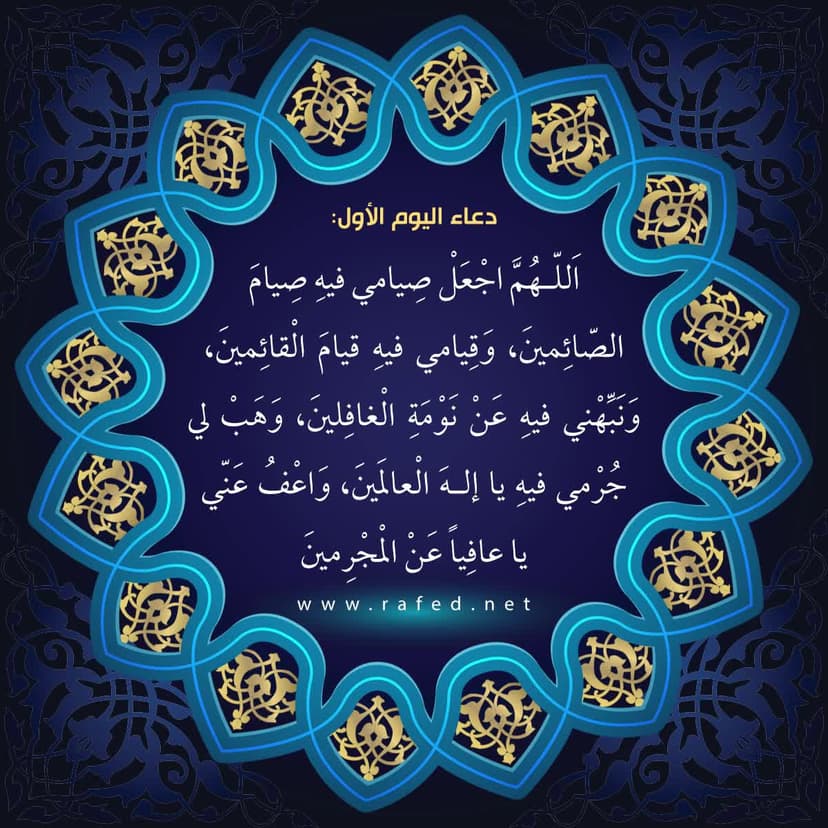 دعاء اليوم الأول:
اَللّـهُمَّ اجْعَلْ صِيامي فيهِ صِيامَ
الصّائِمينَ، وَقِيامي فيهِ قيامَ الْقائِمينَ،
وَنَبِّهْني فيهِ عَنْ نَوْمَةِ الْغافِلينَ، وَهَبْ لي
جُرْمي فيهِ يا إلـهَ الْعالَمينَ، وَاعْفُ عَنّي
يا عافِياً عَنْ الْمجْرِمينَ
www.rafed.net